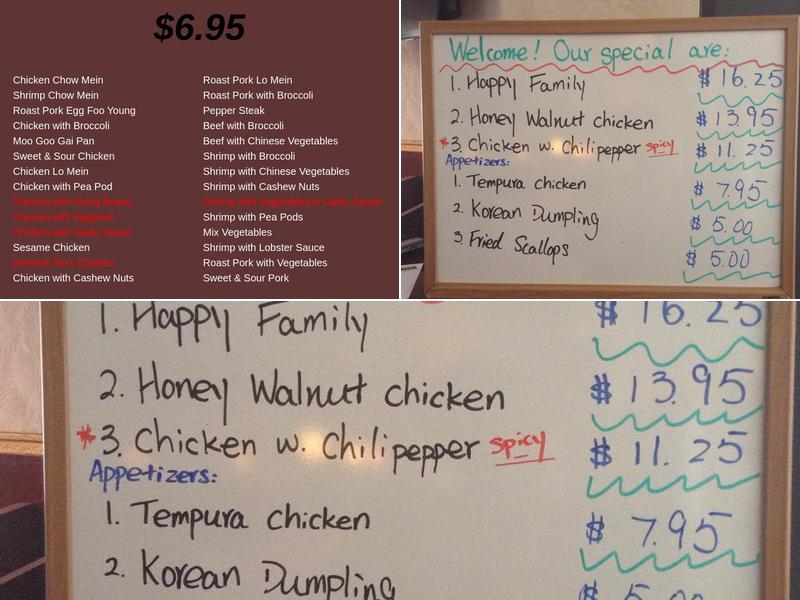 $6.95
Chicken Chow Mein
Shrimp Chow Mein
Roast Pork Egg Foo Young
Chicken with Broccoli
Moo Goo Gai Pan
Sweet & Sour Chicken
Chicken Lo Mein
Chicken with Pea Pod
Chicken with String Beans
Chicken with Eggplant
Chicken with Garlic Sauce
Sesame Chicken
General Tso's Chicken
Chicken with Cashew Nuts
Roast Pork Lo Mein
Roast Pork with Broccoli
Pepper Steak
Beef with Broccoli
Beef with Chinese Vegetables
Shrimp with Broccoli
Shrimp with Chinese Vegetables
Shrimp with Cashew Nuts
Shrimp with Vegetables in Garlic Sauce
Shrimp with Pea Pods
Mix Vegetables
Shrimp with Lobster Sauce
Roast Pork with Vegetables
Sweet & Sour Pork
Welcome! Our special are:
1. Happy Family $16.25
2. Honey Walnut chicken $13.95
*3. Chicken w. Chilipepper spicy $11.25
Appetizers:
1. Tempura chicken $7.95
2. Korean Dumpling $5.00
3. Fried Scallops $5.00
1. Happy Family $16.25
2. Honey Walnut chicken $13.95
*3. Chicken w. Chilipepper spicy $11.25
Appetizers:
1. Tempura chicken $7.95
2. Korean Dumpling $5.00